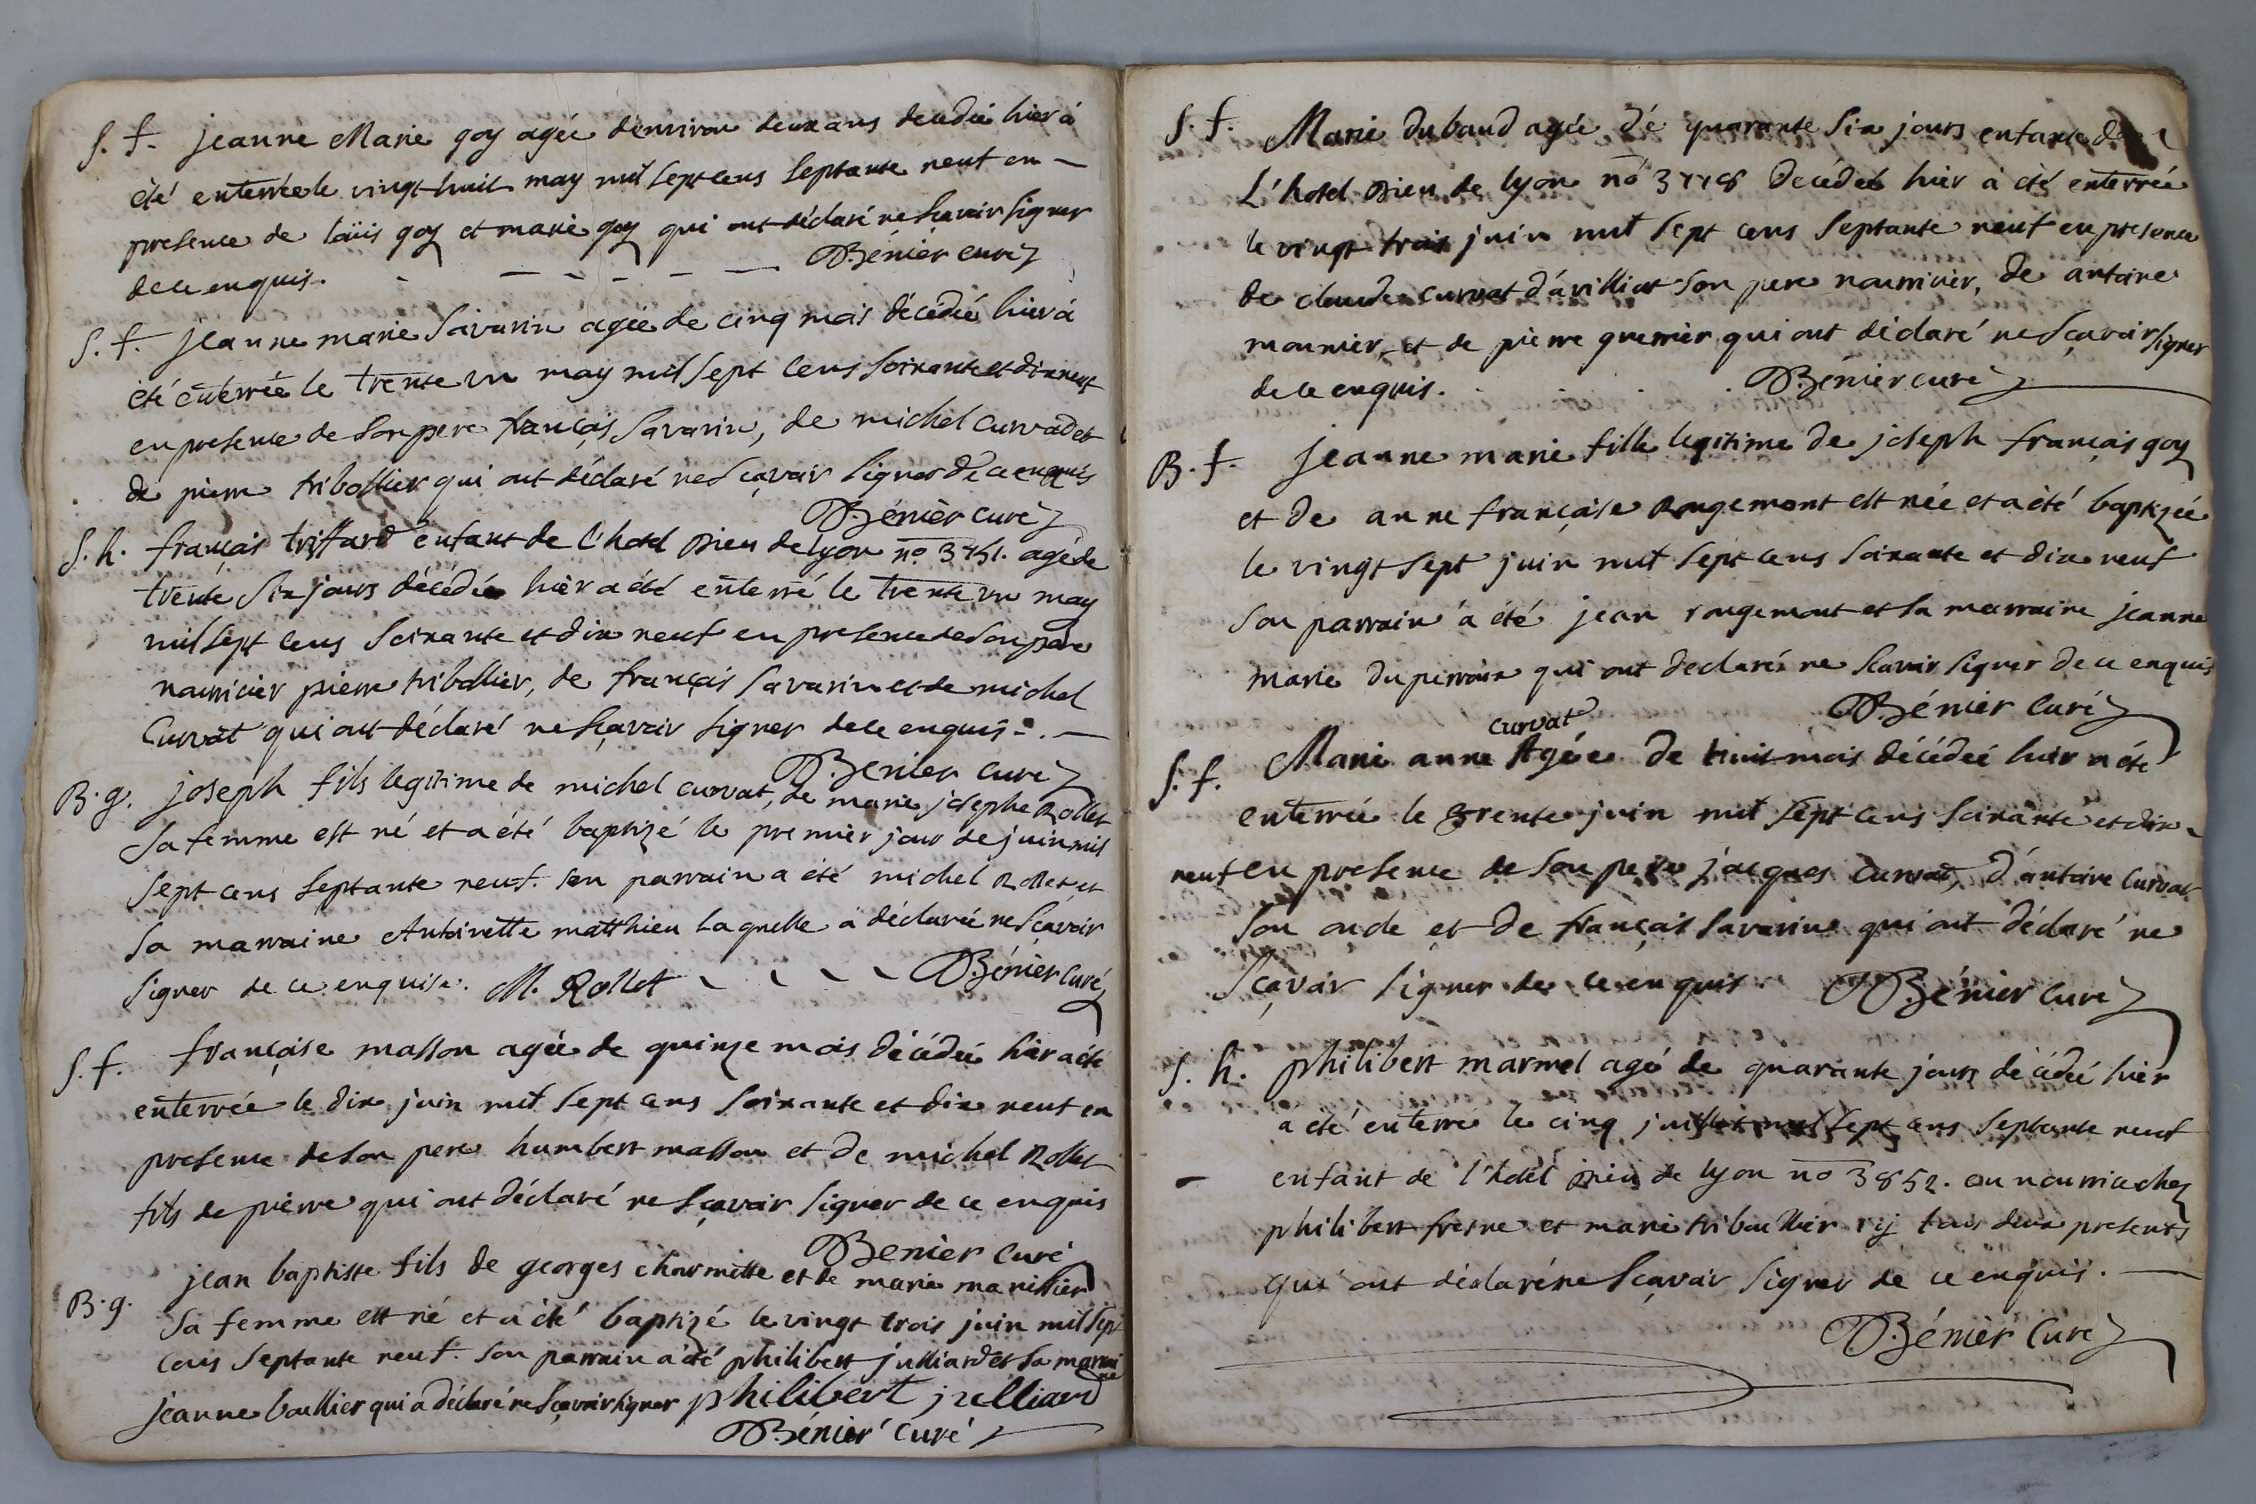 S. f. jeanne Marie goy agée denviron deux ans decedée hier à
été enterrée le vingt huit may mil sept cens septante neuf en
presence de loüis goy et marie goy qui ont déclaré ne sçavoir signer
de ce enquis. Bénier curé
S. f. jeanne marie Savarin agée de cinq mois décédée hier à
été enterrée le trente un may mil sept cens soixante et dix neuf
en presence de son pere françois Savarin, de michel curvat et
de pierre tribollier qui ont déclaré ne sçavoir signer de ce enquis
Bénier curé
S. h. françois triffard enfant de l'hotel Dieu de lyon no. agé de
trente six jours décédé hier a été enterré le trente un may
mil sept cens soixante et dix neuf en presence de son pere
nourricier pierre tribollier, de françois savarin et de michel
Curvat qui ont déclaré ne sçavoir signer de ce enquis.
Bénier curé
B. g. joseph fils legitime de michel curvat, de marie josephe Rollet
sa femme est né et a été baptizé le premier jour de juin mil
sept cens septante neuf. son parrain a été michel Rollet et
sa marraine Antoinette matthieu laquelle a déclarée ne sçavoir
signer de ce enquise. M. Rollet Bénier curé
S. f. françoise masson agée de quinze mois décédée hier a été
enterrée le dix juin mil sept cens soixante et dix neuf en
presence de son pere humbert masson et de michel Rollet
fils de pierre qui ont déclaré ne sçavoir signer de ce enquis
Bénier curé
B. g. jean baptiste fils de georges charmette et de marie manissier
sa femme est né et a été baptizé le vingt trois juin mil sept
cens septante neuf. son parrain a été philibert julliard et sa marrai
ne
jeanne boullier qui a déclaré ne sçavoir signer philibert julliard
Bénier curé
S. f. Marie dubaud agée de quarante six jours enfant de
L'hotel Dieu de lyon no décédée hier à été enterrée
le vingt trois juin mil sept cens septante neuf en presence
de claude curvat d'avilliat son pere nourricier, de antoine
mounier, et de pierre guerrier qui ont déclaré ne sçavoir signer
de ce enquis. Bénier curé
B. f. jeanne marie fille legitime de joseph françois goy
et de anne françoise Rougemont est née et a été baptizée
le vingt sept juin mil sept cens soixante et dix neuf
son parrain a été jean rougemont et sa marraine jeanne
marie duperroix qui ont declaré ne scavoir signer de ce enquis
Bénier curé
curvat
S. f. Marie anne Agée de huit mois décédée hier a été
enterrée le trente juin mil sept cens soixante et dix
neuf en presence de son pere jacques curvat, d'antoine curvat
son oncle et de françois savarin qui ont déclaré ne
sçavoir signer de ce enquis Bénier curé
S. h. philibert marmel agé de quarante jours décédé hier
a été enterré le cinq juillet mil sept cens septante neuf
enfant de l'hotel Dieu de lyon no 3852. en nourrice chez
philibert fresne et marie triboullier icy tous deux presents
qui ont déclaré ne sçavoir signer de ce enquis.
Bénier curé